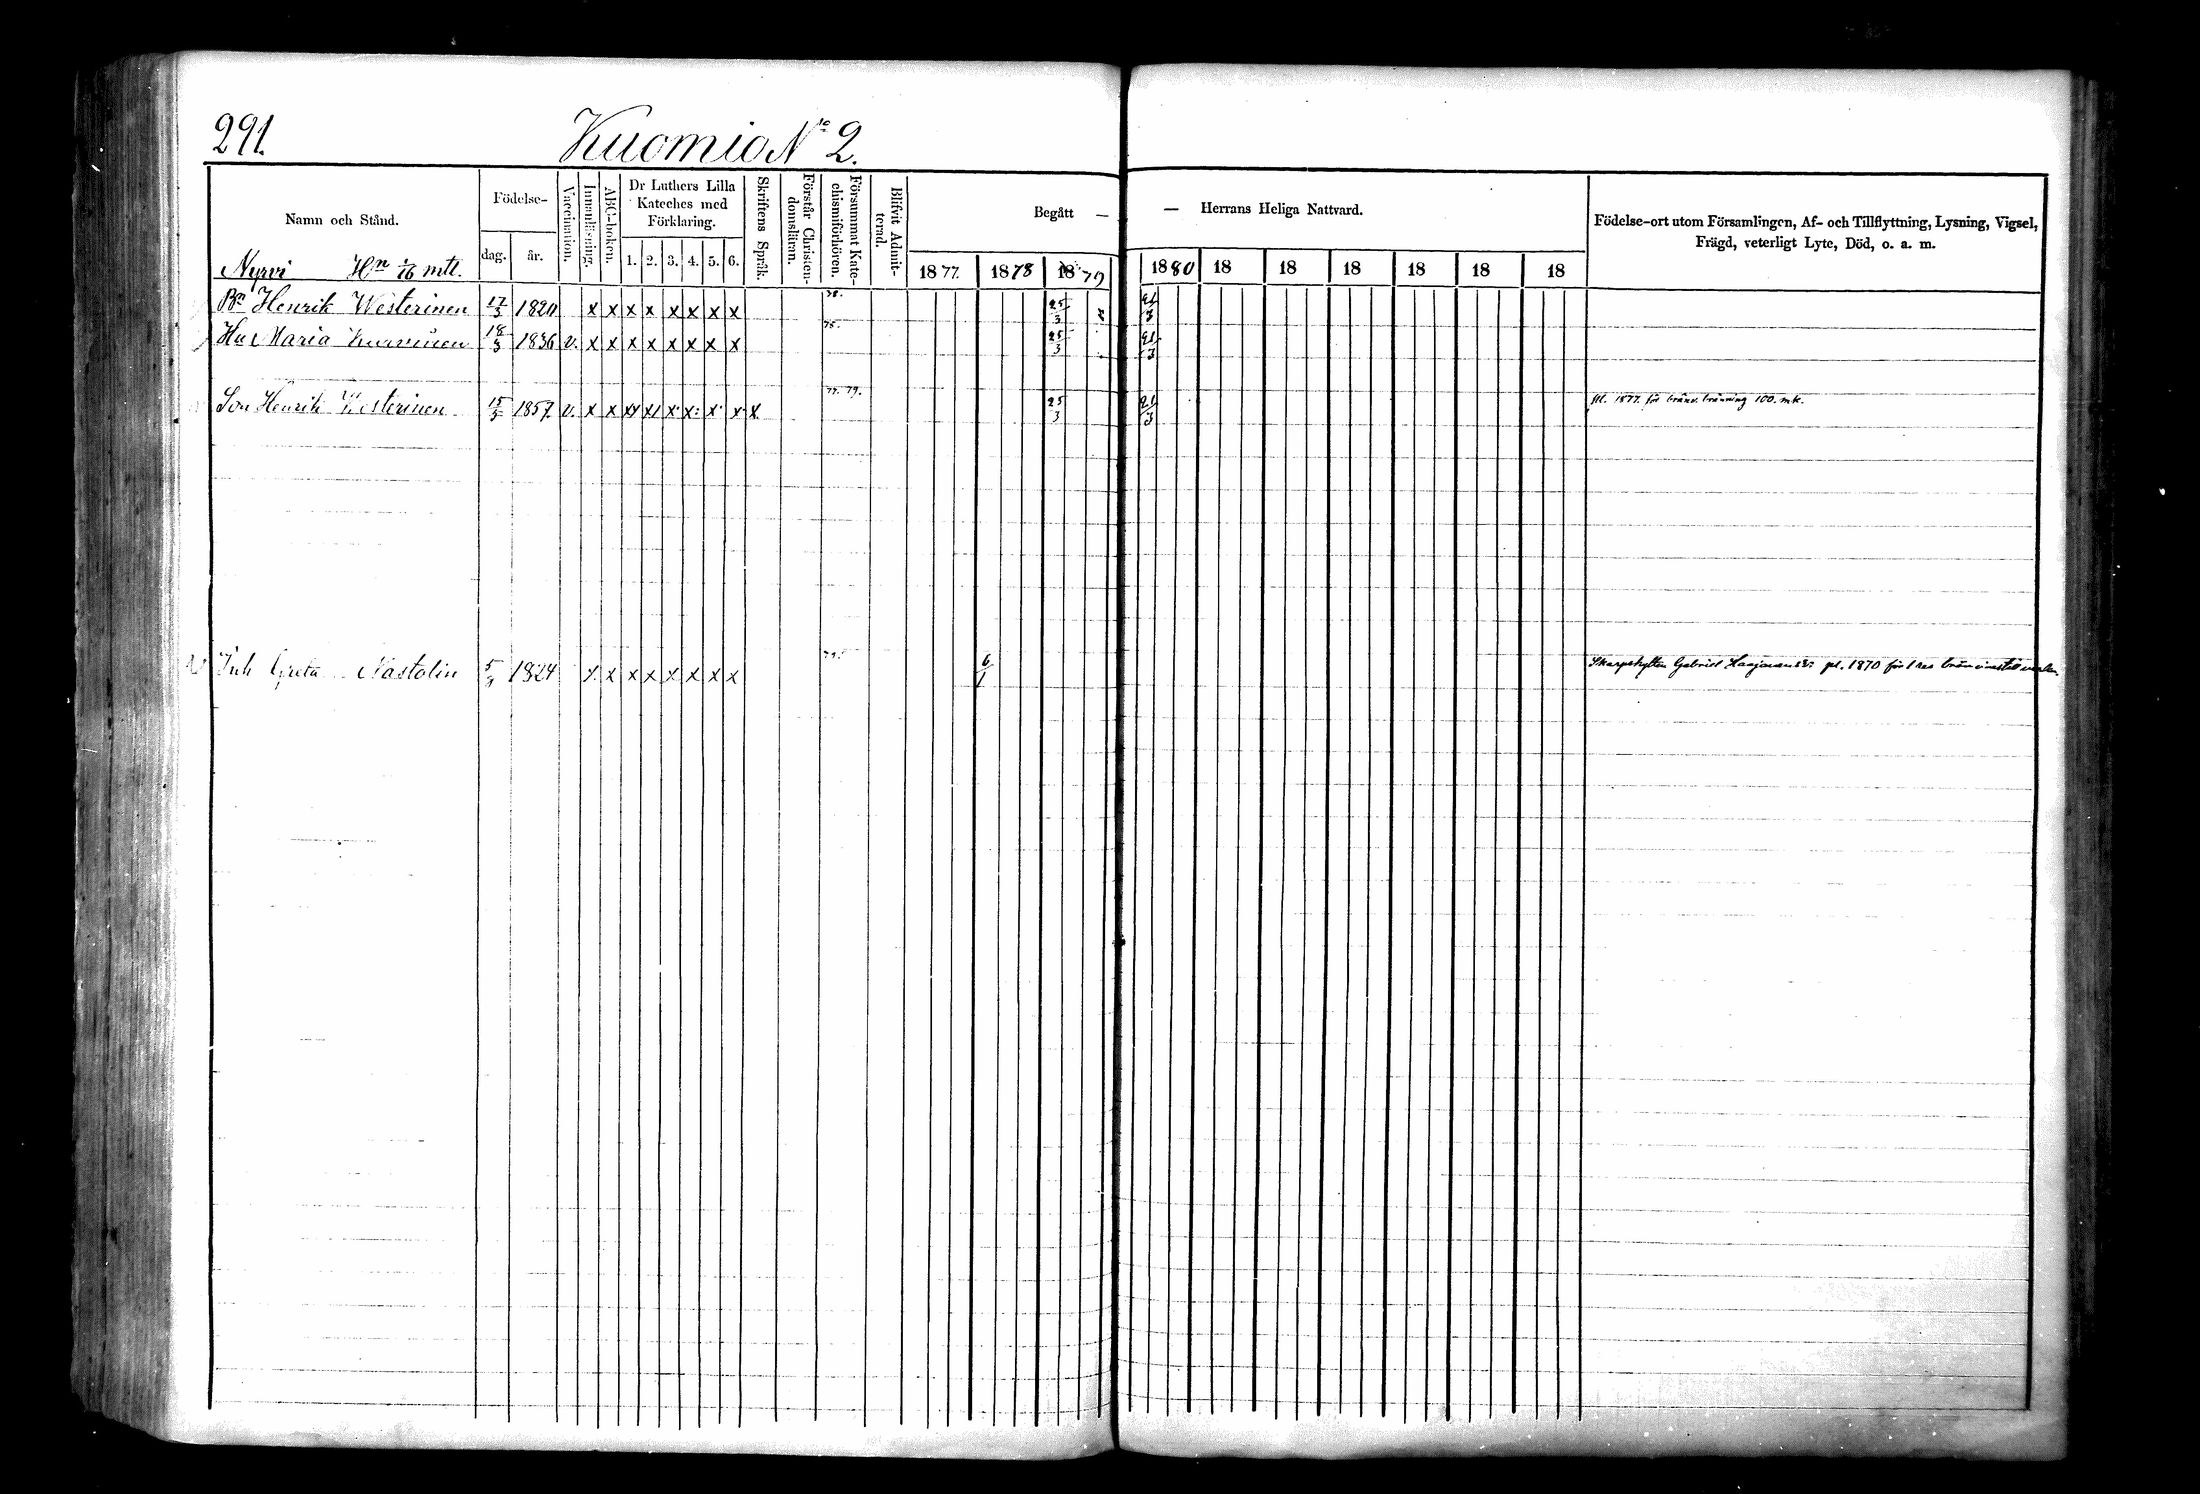 291.
Kuomio No 2.
Namn och Stånd.
Födelse-
dag.
år.
Vaccination.
Innanläsning.
ABC-boken.
Dr Luthers Lilla
Kateches med
Förklaring.
1. 2. 3. 4. 5. 6.
Skriftens Språk.
Förstår Christen-
domsläran.
Försummat Kate-
chismiförhören.
Blifvit Admit-
terad.
Begått — — Herrans Heliga Nattvard.
1877. 1878 1879 1880 18 18 18 18 18 18
Födelse-ort utom Församlingen, Af- och Tillflyttning, Lysning, Vigsel,
Frägd, veterligt Lyte, Död, o. a. m.
Nyrvi Hn mtl.
Bn Henrik Westerinen 17/3 1820 x x x x x x x x 78. 25/3 21/3
Hu Maria 18/3 1836 v. x x x x x x x x 78. 25/3 21/3
Son Henrik Westerinen 15/3 1857. v. x x x x x x x x x 77. 79. 25/3 21/3 pl. 1877. för bränv. bränning 100. mk.
Inh Greta Nastolin 5/9 1824 x x x x x x x x 79. 6/1 Skarpskytten Gabriel pl. 1870 för